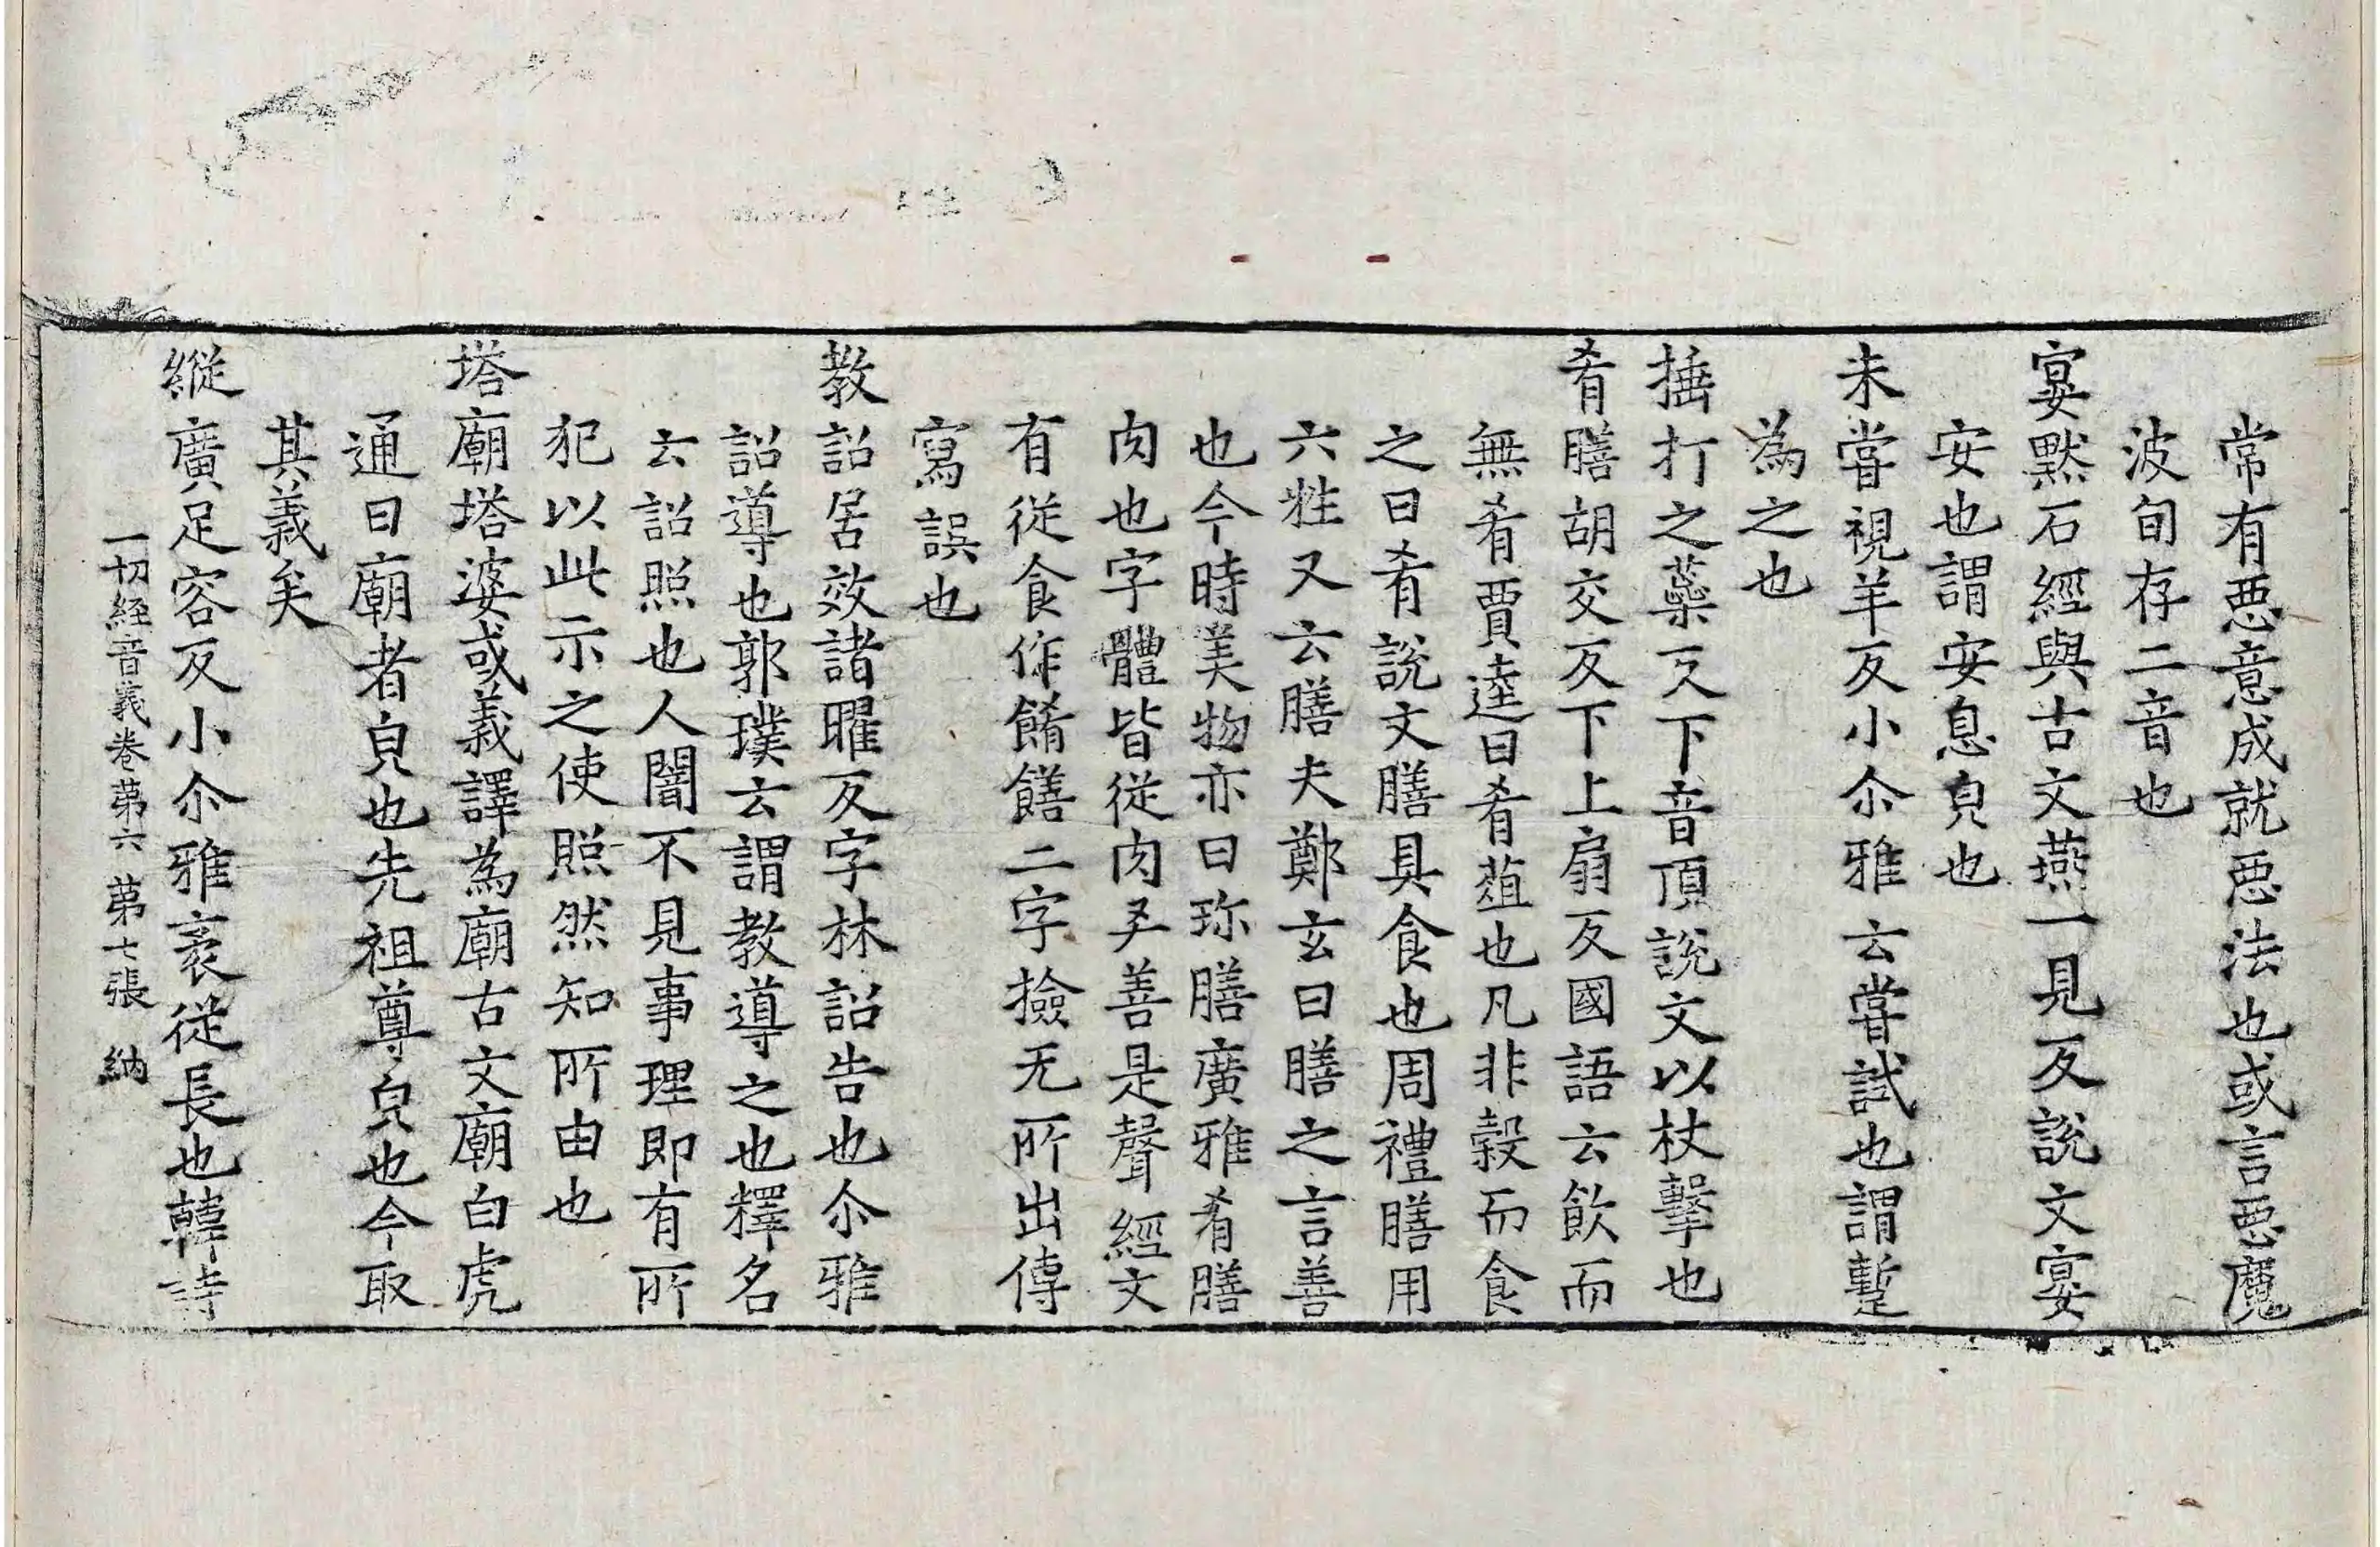 常有惡意成就惡法也或言惡魔
波旬存二音也
宴默石經與古文燕一見反說文宴
安也謂安息皃也
未甞視羊反小尒雅云甞試也謂蹔
為之也
捶打之蘂反下音頂說文以杖擊也
肴膳胡交反下上扇反國語云飲而
無肴賈逵曰肴葅也凡非穀而食
之曰肴說文膳具食也周禮膳用
六牲又云膳夫鄭玄曰膳之言善
也今時美物亦曰珎膳廣雅肴膳
肉也字體皆從肉㕛善是聲經文
有從食作餚饍二字撿无所出傳
寫誤也
教詔居效諸曜反字林詔告也尒雅
詔導也郭璞云謂教導之也釋名
云詔照也人闇不見事理即有所
犯以此示之使照然知所由也
塔廟塔婆或義譯為廟古文廟白虎
通曰廟者皃也先祖尊皃也今取
其義矣
縱廣足容反小尒雅袤從長也韓詩
一切經音義卷第六 第七張 納